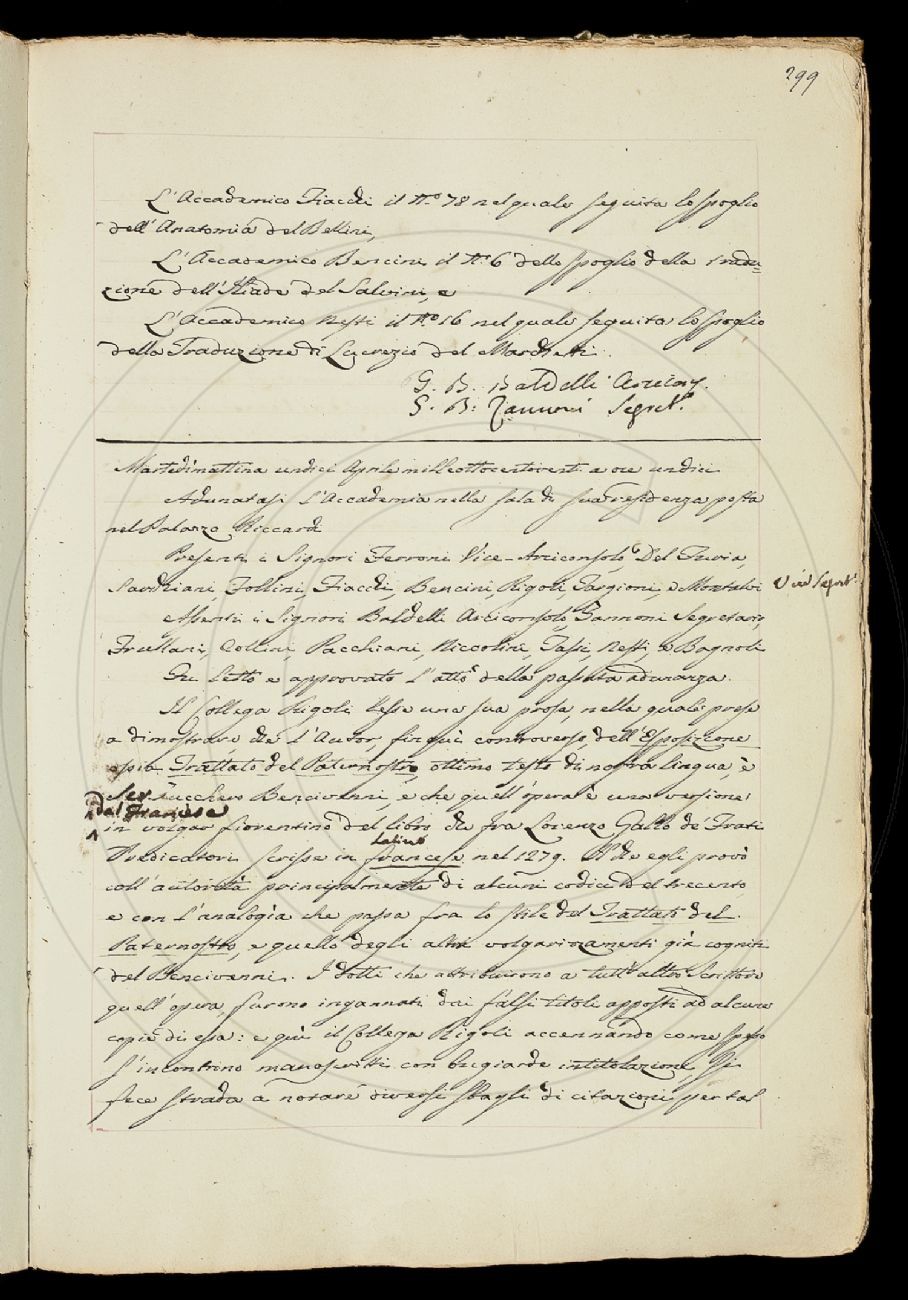 299
L'Accademico Fiacchi il N.º 78 nel quale seguita lo spoglio
dell'Anatomia del Bellini,
L'Accademico Bencini il N.º 6 dello spoglio della tradu=
zione dell'Iliade del Salvini, e
L'Accademico Nesti il N.º 16 nel quale seguita lo spoglio
della Traduzione di Lucrezio del Marchetti.
G. B. Baldelli Arcicons.
G. B. Zannoni Segret.º
Martedì mattina undici Aprile milleottocentoventi a ore undici
Adunatasi l'Accademia nella sala di sua residenza posta
nel Palazzo Riccardi
Presenti i Signori Ferroni Vice-Arciconsolo, Del Furia,
Sarchiani, Follini, Fiacchi, Bencini, Rigoli, Targioni, e Montalvi Vice Segret.º
Assenti i Signori Baldelli Arciconsolo, Zannoni Segretario,
Frullani, Collini, Pacchiani, Niccolini, Tassi, Nesti, e Bagnoli
Fu letto e approvato l'atto della passata adunanza.
Il Collega Rigoli lesse una sua prosa, nella quale prese
a dimostrare che l'Autor, fin quì controverso, dell'Esposizione
ossia Trattato del Paternostro, ottimo testo di nostra lingua, è
Ser Zucchero Bencivenni, e che quell'opera è una versione
Dal Francese
in volgar fiorentino del libro che fra Lorenzo Gallo de' Frati
latino
Predicatori scrisse in francese nel 1279. Il che egli provò
coll'autorità principalmente di alcuni codici del trecento
e con l'analogìa che passa fra lo stile del Trattato del
Paternostro, e quello degli altri volgarizzamenti già cogniti
del Bencivenni. I dotti che attribuirono a tutt'altro Scrittore
quell'opera, furono ingannati dai falsi titoli apposti ad alcune
copie di essa: e quì il Collega Rigoli accennando come spesso
s'incontrino manoscritti con bugiarde intitolazioni si
fece strada a notare diversi sbagli di citazioni per tal